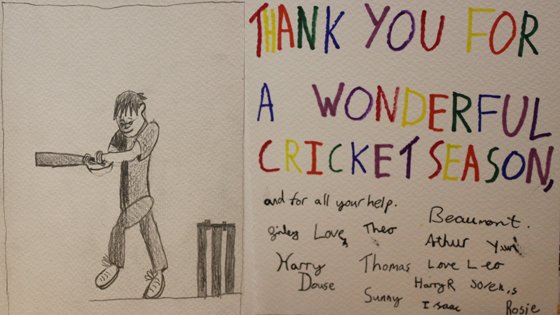 THANK YOU FOR
A WONDERFUL
CRICKET SEASON,
and for all your help.
Beaumont.
Love, Theo
Arthur
Harry Douse
Thomas
Love Leo
Harry R
Sunny
Isaac
Rosie